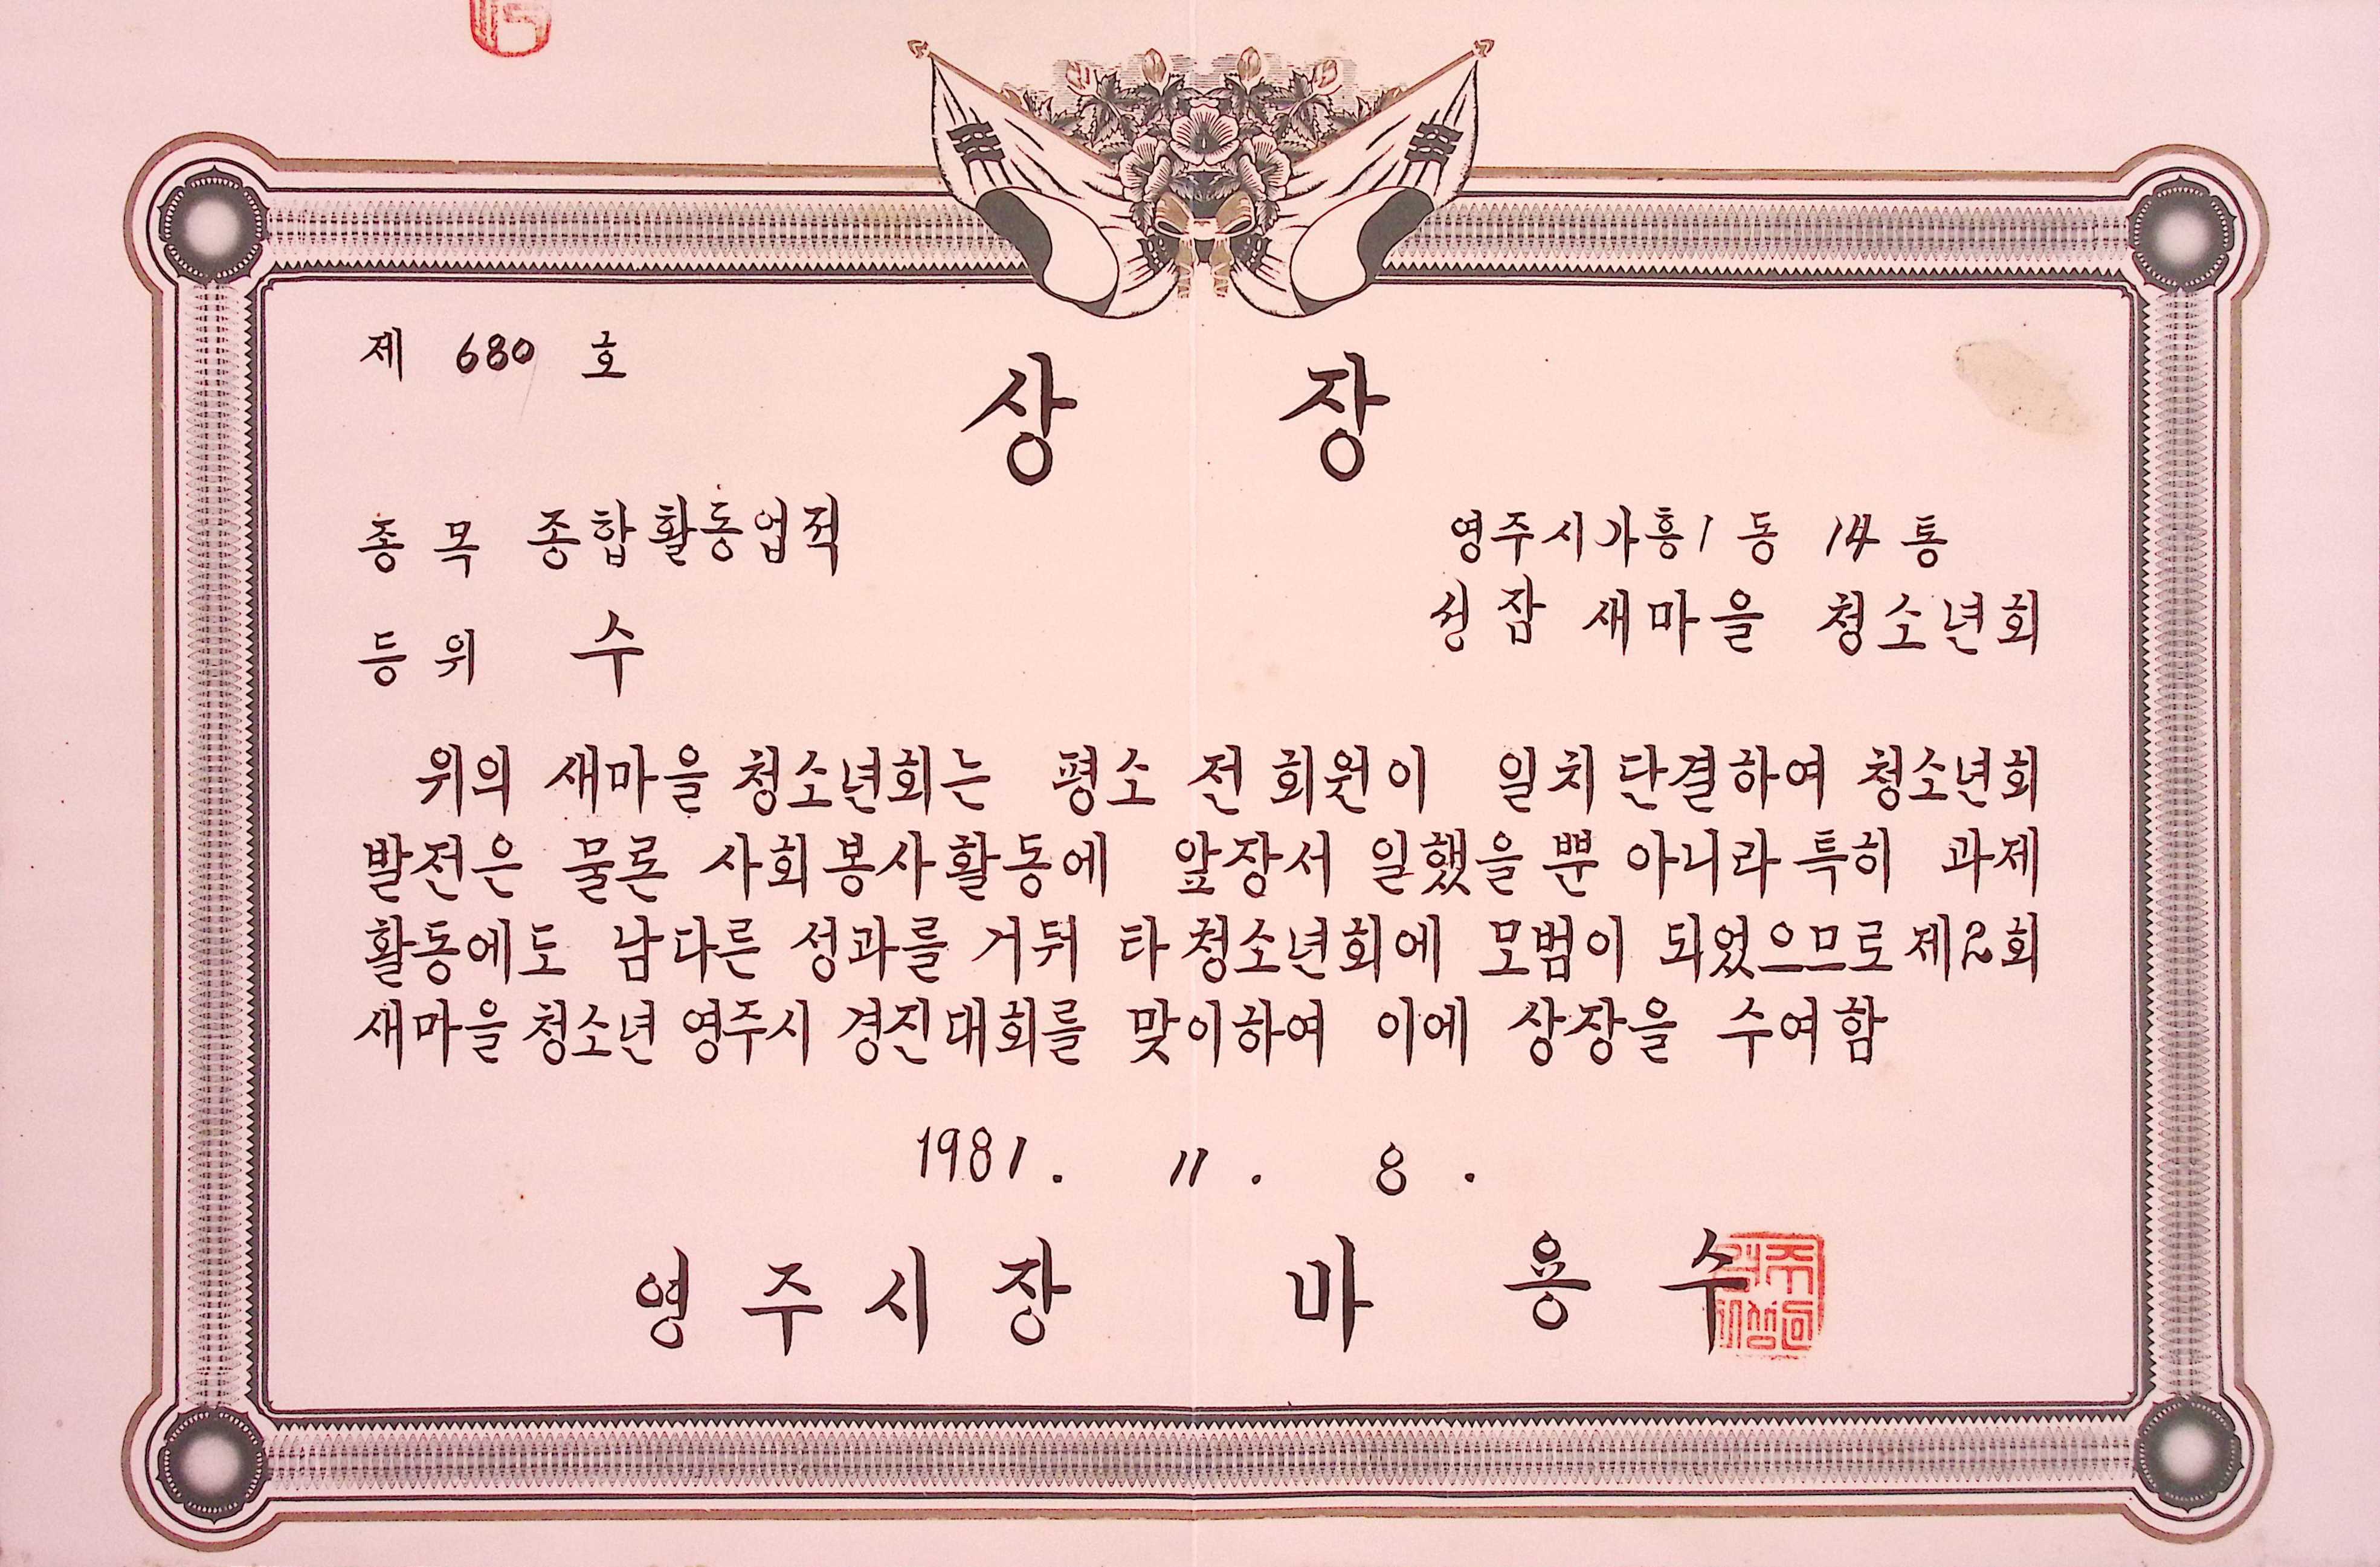 제 680 호
상 장
종 목 종합활동업적
등 위 수
영주시가흥1 동 14 통
성잠 새마을 청소년회
위의 새마을 청소년회는 평소 전 회원이 일치단결하여 청소년회
발전은 물론 사회봉사활동에 앞장서 일했을 뿐 아니라 특히 과제
활동에도 남다른 성과를 거둬 타 청소년회에 모범이 되었으므로 제2회
새마을 청소년 영주시 경진대회를 맞이하여 이에 상장을 수여함
1981. 11. 8.
영 주 시 장 마 용 수